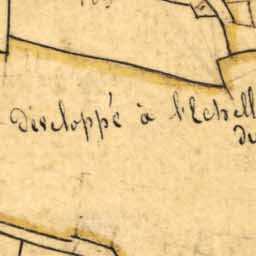 développé à l'Echell
de